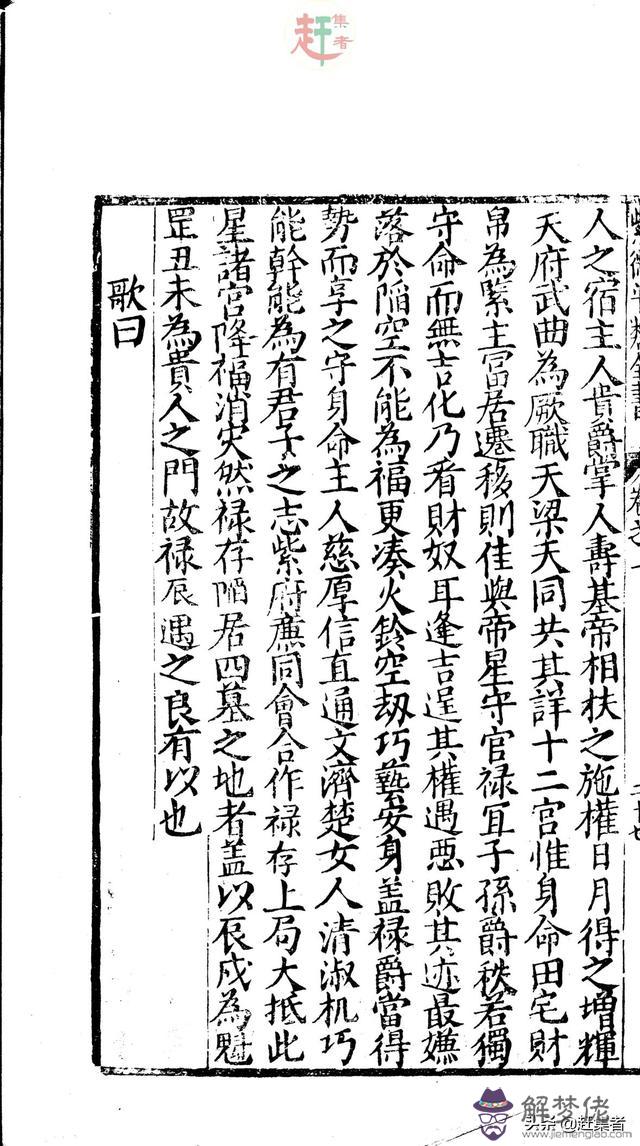 赶集者
人之宿主人貴爵掌人壽基帝相扶之施權日月得之增輝
天府武曲為厥職天梁天同共其詳十二宫惟身命田宅財
帛為緊主冨居遷移則佳與帝星守官禄宜子孫爵秩若獨
守命而無吉化乃看財奴耳逢吉逞其權遇惡敗其迹最嫌
落於陥空不能為福更凑火鈴空刼巧藝安身盖禄爵當得
勢而享之守身命主人慈厚信直通文濟楚女人清淑机巧
能幹能為有君子之志紫府廉同會合作禄存上局大抵此
星諸宮降福消灾然禄存陥居四墓之地者盖以辰戌為魁
罡丑未為貴人之門故禄辰遇之良有以也
歌曰
解梦佬
www.jiemenglao.com
头条@赶集者